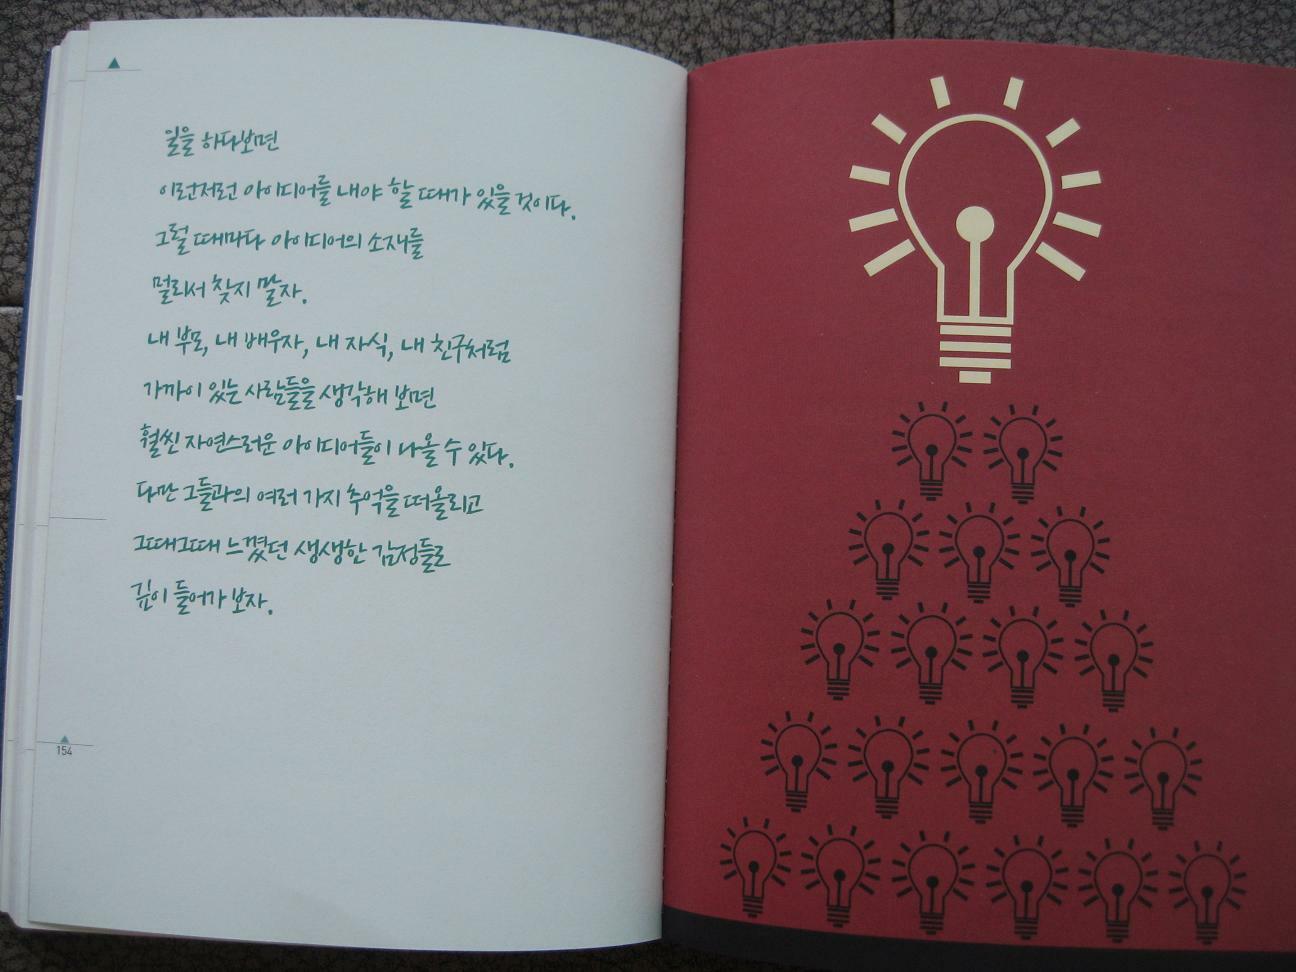 일을 하다보면
이런저런 아이디어를 내야 할 때가 있을 것이다.
그럴 때마다 아이디어의 소재를
멀리서 찾지 말자.
내 부모, 내 배우자, 내 자식, 내 친구처럼
가까이 있는 사람들을 생각해 보면
훨씬 자연스러운 아이디어들이 나올 수 있다.
다만 그들과의 여러 가지 추억을 떠올리고
그때그때 느꼈던 생생한 감정들로
깊이 들어가 보자.
154